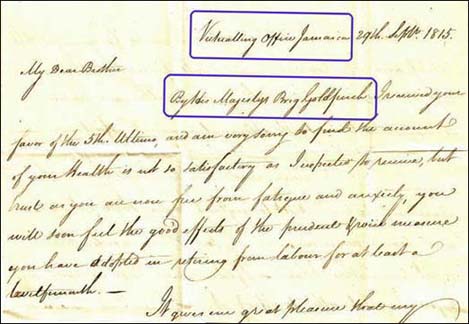 Victualling Office Jamaica 29th. Septr. 1815.
My Dear Brother
By His Majestys Brig Goldfinch I received your
favor of the 5th. Ultimo, and am very sorry to find the account
of your Health is not so satisfactory as I expected to receive, but
trust as you are now free from fatigue and anxiety, you
will soon feel the good effects of the prudent & wise measure
you have adopted in retiring from labour for at least a
twelvemonth. —
It gives me great pleasure that my